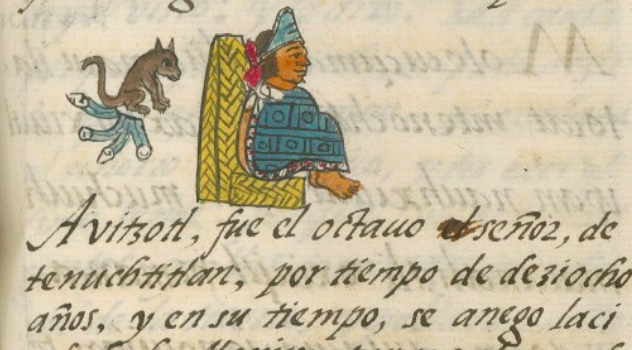 Avitzotl, fue el octauo el señor, de
tenuchtitlan, por tiempo de deziocho
años, y en su tiempo, se anego laci